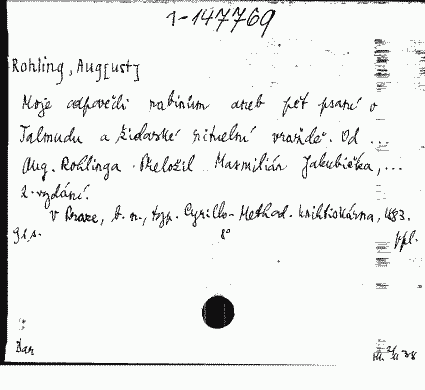 1-147769
Rohling, Aug[ust]
Moje odpovědi rabínům aneb pět psaní o
Talmudu a židovské rituelní vraždě. Od ...
Aug. Rohlinga. Přeložil Maxmilián Jakubička, ...
2. vydání.
V Praze, b. n., typ. Cyrillo-Method. knihtiskárna, 1883.
91 s. 8° ppl.
Dar